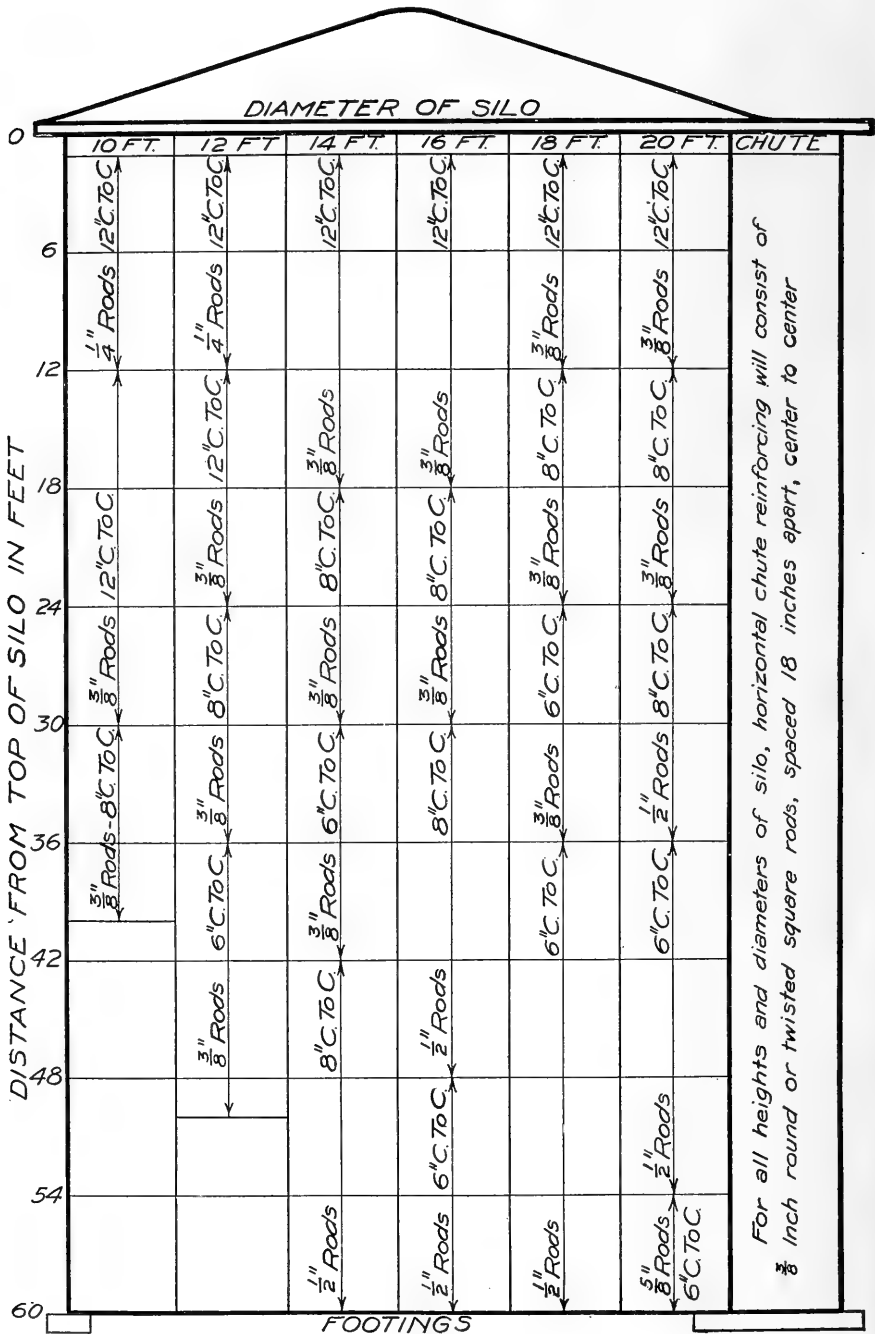 DIAMETER OF SILO
10 FT. 12 FT 14 FT. 16 FT. 18 FT. 20 FT. CHUTE
DISTANCE FROM TOP OF SILO IN FEET
0
6
12
18
24
30
36
42
48
54
60
1/4" Rods 12"C.ToC.
3/8" Rods 12"C.ToC.
3/8" Rods-8"C.ToC.
1/4" Rods 12"C.ToC.
3/8" Rods 12"C.ToC.
3/8" Rods 8"C.ToC.
3/8" Rods 6"C.ToC.
3/8" Rods 12"C.ToC.
3/8" Rods 8"C.ToC.
3/8" Rods 6"C.ToC.
1/2" Rods 8"C.ToC.
3/8" Rods 12"C.ToC.
3/8" Rods 8"C.ToC.
1/2" Rods 8"C.ToC.
1/2" Rods 6"C.ToC.
3/8" Rods 12"C.ToC.
3/8" Rods 8"C.ToC.
3/8" Rods 6"C.ToC.
1/2" Rods 6"C.ToC.
3/8" Rods 12"C.ToC.
3/8" Rods 8"C.ToC.
1/2" Rods 8"C.ToC.
1/2" Rods 6"C.ToC.
5/8" Rods
6"C.ToC.
For all heights and diameters of silo, horizontal chute reinforcing will consist of
3/8 Inch round or twisted square rods, spaced 18 inches apart, center to center
FOOTINGS